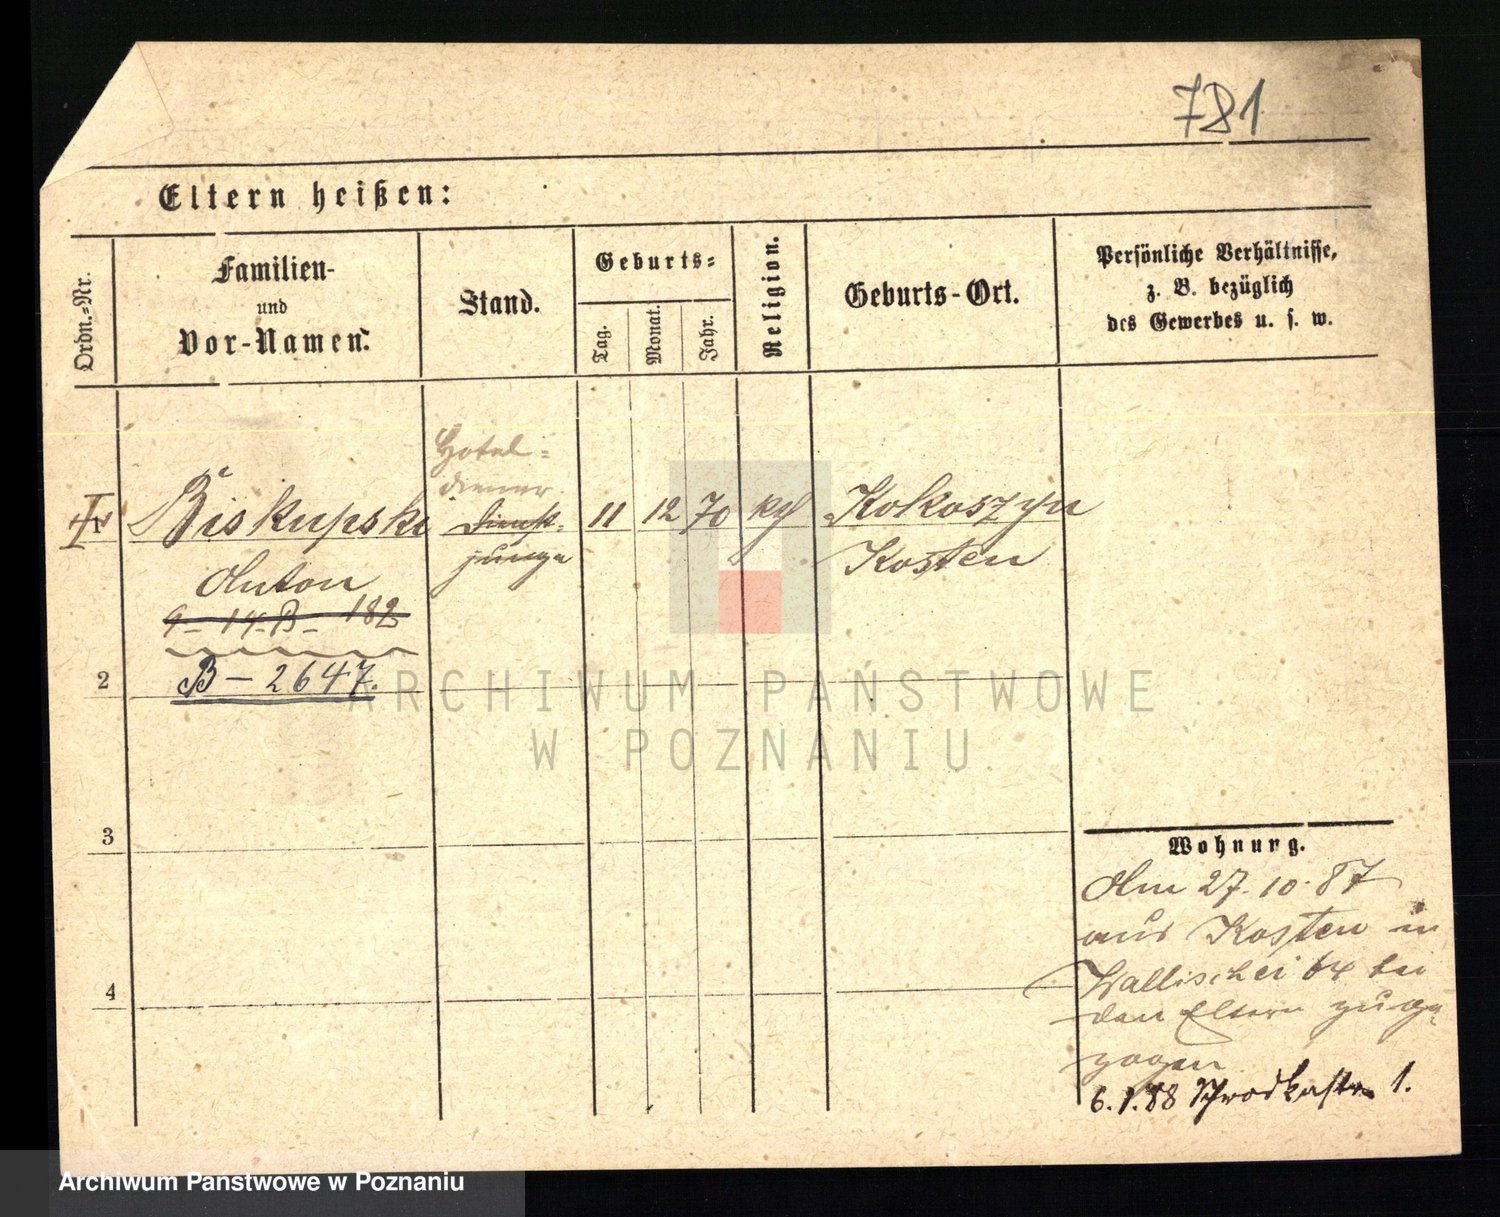 781
Eltern heißen:
Ordn.-Nr.
Familien-
und
Vor-Namen.
Stand.
Geburts-
Tag.
Monat.
Jahr.
Religion.
Geburts-Ort.
Persönliche Verhältnisse,
z. B. bezüglich
des Gewerbes u. s. w.
Hotel-
diener
Biskupski
Dienst-
11
12
70
Kokoszyn
junge
Kosten
Anton
9-14-B-182
2
B-2647.
3
4
Wohnung.
Am 27.10.87
aus Kosten in
Wallischei 64 bei
den Eltern zuge-
zogen
6.1.88 Schrodkastr. 1.
ARCHIWUM PAŃSTWOWE
W POZNANIU
Archiwum Państwowe w Poznaniu